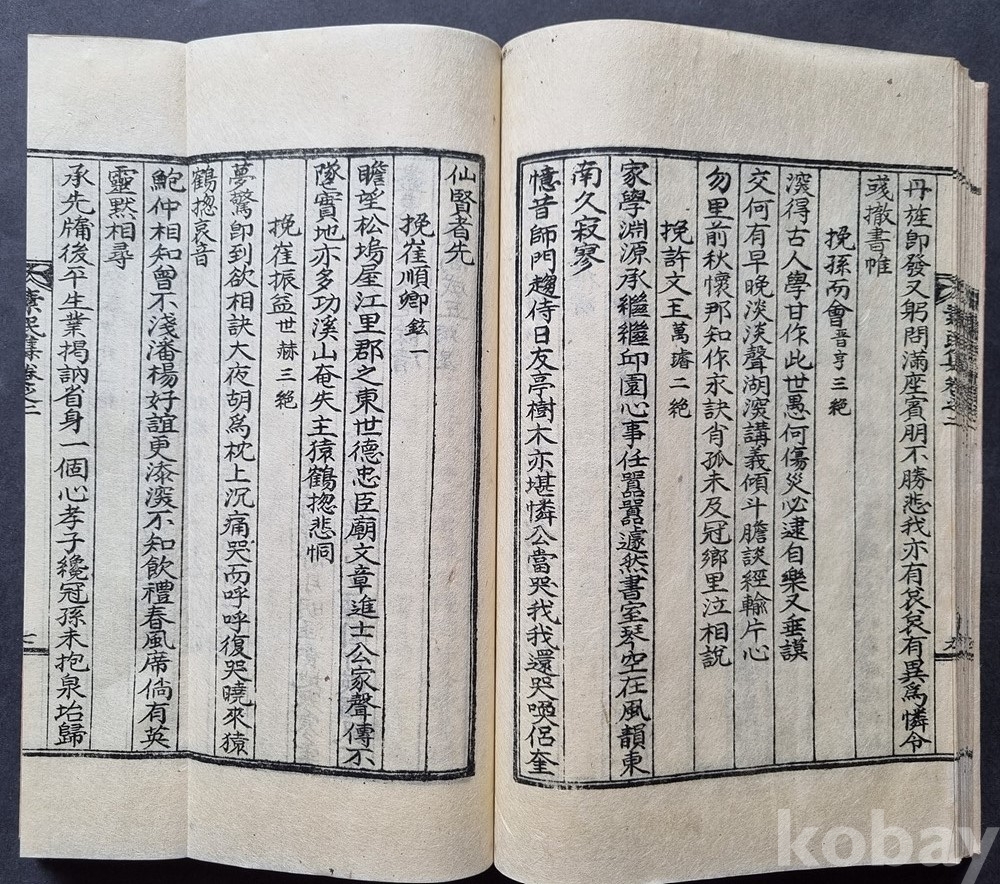 丹旌卽發又躬問滿座賓朋不勝悲我亦有哀哀有異爲憐令
彧撤書帷
挽孫而會晋亨三絶
深得古人學甘作此世愚何傷災必逮自樂又垂謨
交何有早晚淡淡聲湖深講義傾斗膽談經輸片心
勿里前秋懷那知作永訣肖孤未及冠鄉里泣相說
挽許文玉萬璿二絶
家學淵源承繼繼邱園心事任囂囂遽然書室琴空在風韻東
南久寂寥
憶昔師門趨侍日友亭樹木亦堪憐公當哭我我還哭喚侶奎
仙賢者先
挽崔順卿鉉一
瞻望松塢屋江里郡之東世德忠臣廟文章進士公家聲傳不
隧實地亦多功溪山奄失主猿鶴揔悲恫
挽崔振益世赫三絶
夢驚卽到欲相訣大夜胡爲枕上沉痛哭而呼呼復哭曉來猿
鶴揔哀音
鮑仲相知曾不淺潘楊好誼更漆深不知飮禮春風席倘有英
靈默相尋
承先牖後平生業揭訥省身一個心孝子纔冠孫未抱泉坮歸
集卷之二
七
kobay